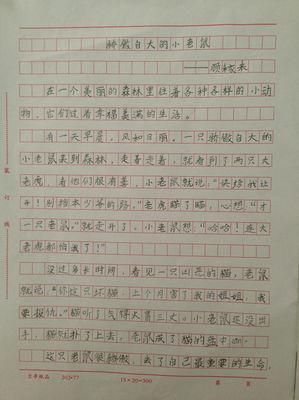 骄傲自大的小老鼠
在一个美丽的森林里住着各种各样的小动
物,它们过着幸福美满的生活。
有一天早晨,风和日丽。一只骄傲自大的
小老鼠来到森林,走着走着,就看到了两只大
老虎,看他们很有喜,小老鼠就说:"快给我让
开!别挡本少爷的路。"老虎瞄了瞄,心想:"才
一只老鼠。"就走开了。小老鼠想:"哈哈!连大
老虎都怕我了!"
没过多长时间,看见一只凶恶的猫,老鼠
就说:"你这只坏猫,上个月害了我的姐姐,我
要报仇。"猫听了气得火冒三丈。小老鼠还没出
手,猫就扑了上去,老鼠成了猫的盘中
这只老鼠很骄傲,丢了自己最重要的生命。
装
订
线
15×20=300